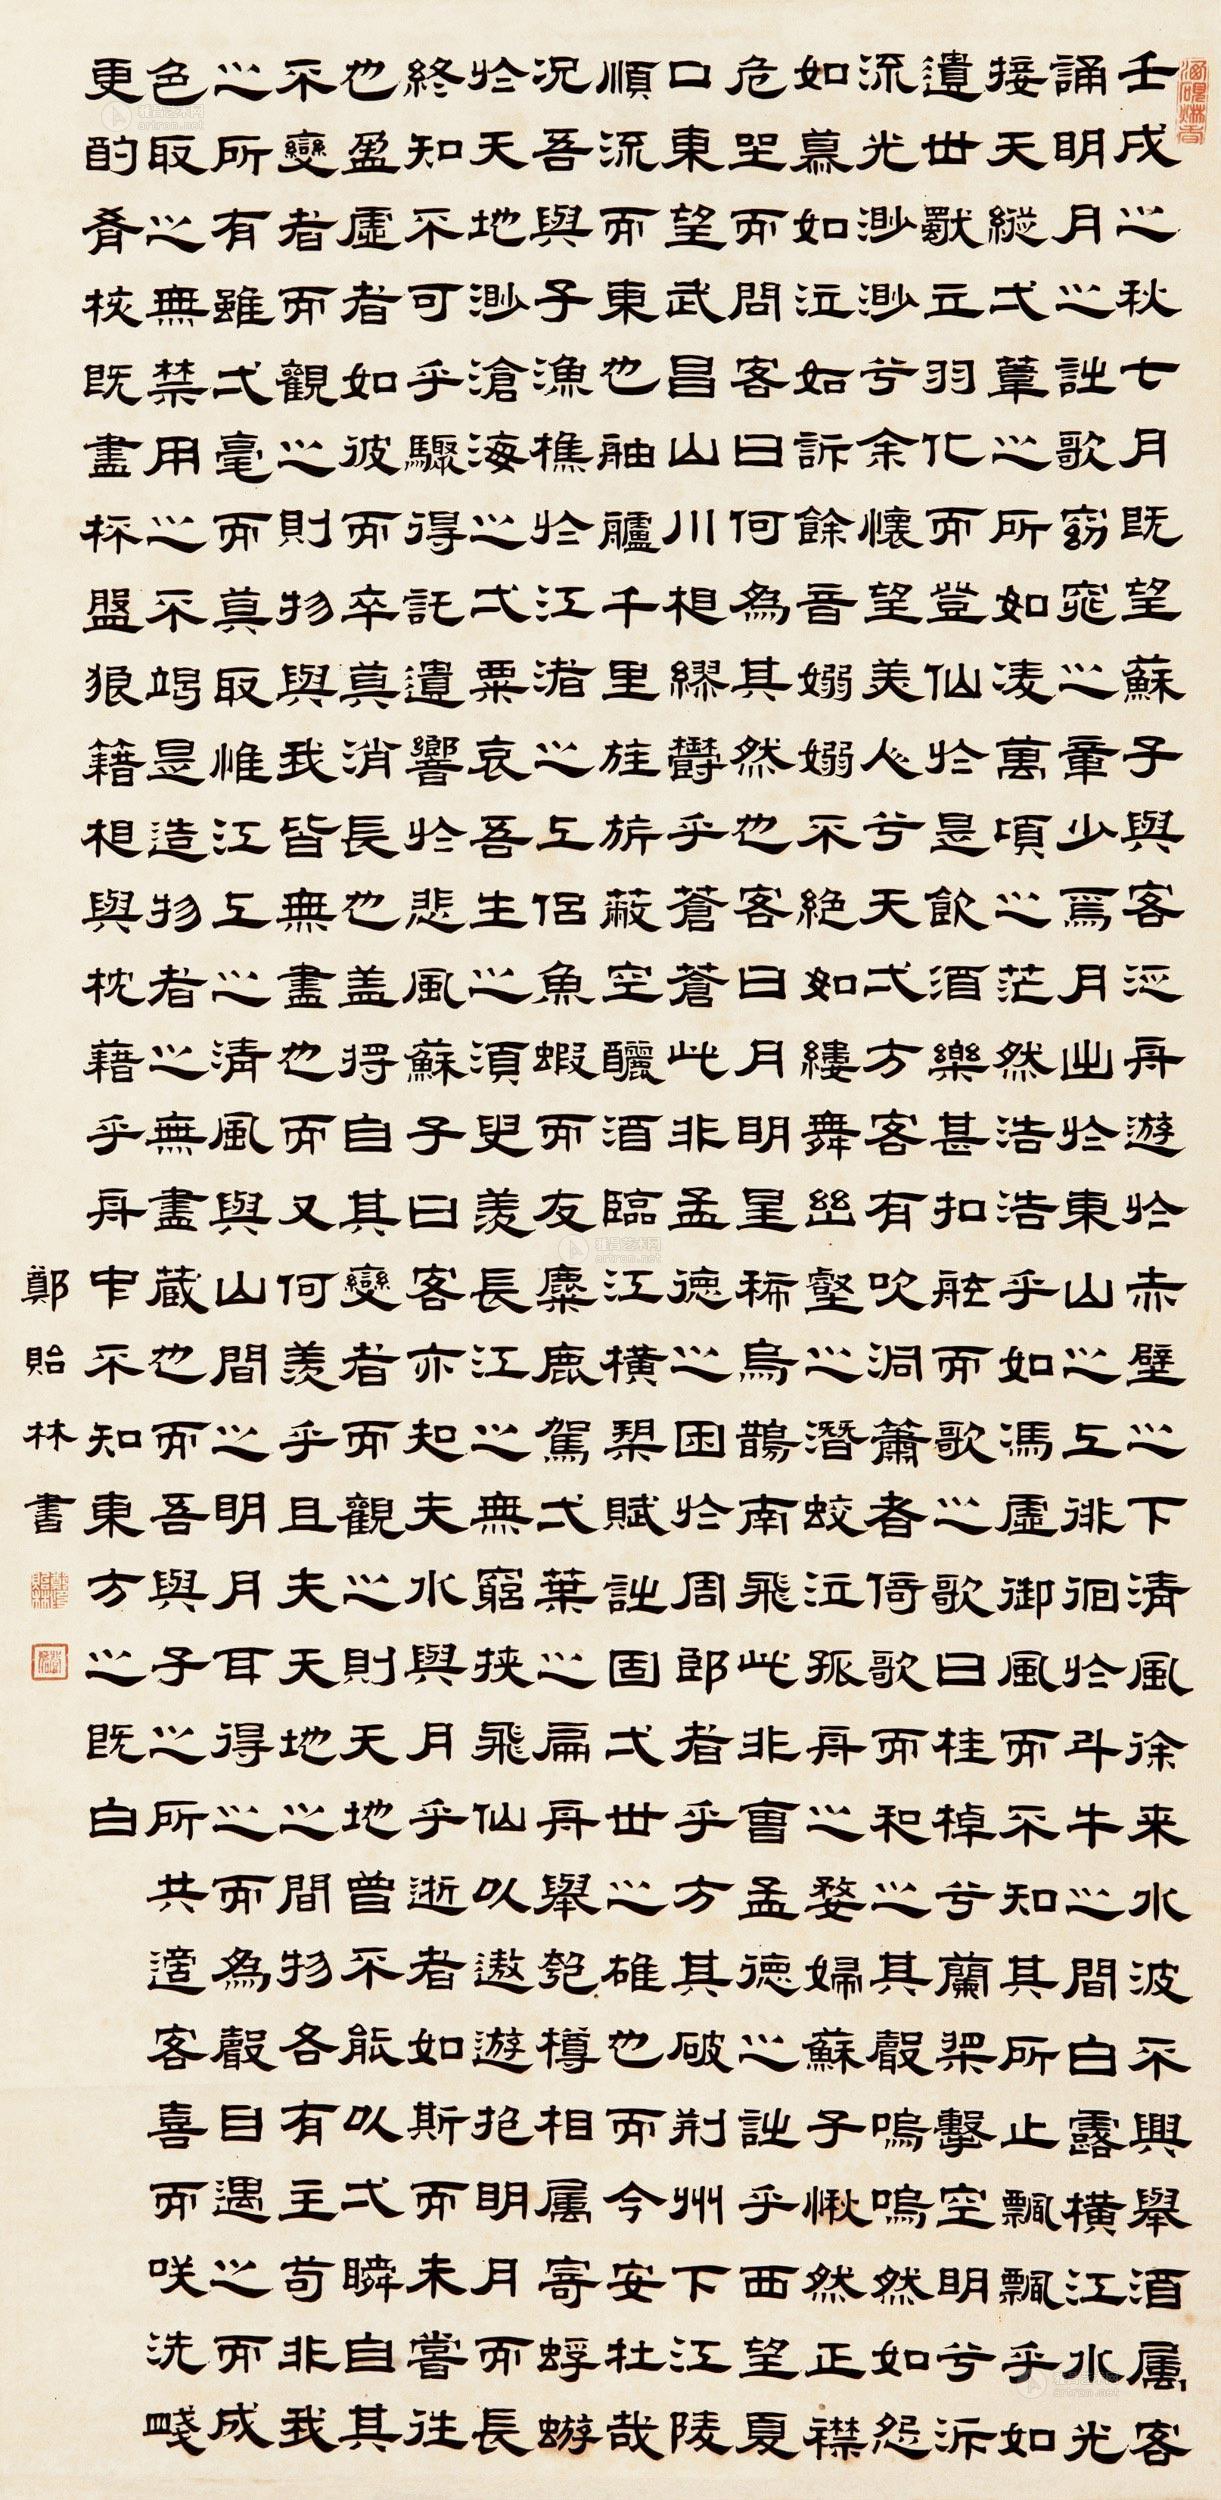 壬戌之秋七月既望蘇子與客泛舟遊於赤壁之下清風徐来水波不興舉酒属客
誦明月之詩歌窈窕之章少焉月出於東山之上徘徊於斗牛之間白露橫江水光
接天縱弌葦之所如凌萬頃之茫然浩浩乎如馮虛御風而不知其所止飄飄乎如
遺世獨立羽化而登仙於是飲酒樂甚扣舷而歌之歌曰桂棹兮蘭槳擊空明兮泝
流光渺渺兮余懷望美人兮天弌方客有吹洞簫者倚歌而和之其聲嗚嗚然如怨
如慕如泣如訴餘音嫋嫋不絕如縷舞幽壑之潛蛟泣孤舟之嫠婦蘇子愀然正襟
危坐而問客曰何為其然也客曰月明星稀烏鵲南飛此非曹孟德之詩乎西望夏
口東望武昌山川相繆鬱乎蒼蒼此非孟德之困於周郎者乎方其破荆州下江陵
順流而東也舳艫千里旌旂蔽空釃酒臨江橫槊賦詩固弌世之雄也而今安在哉
況吾與子漁樵於江渚之上侶魚蝦而友麋鹿駕弌葉之扁舟舉匏樽相属寄蜉蝣
於天地渺滄海之弌粟哀吾生之須臾羨長江之無窮挾飛仙以遨遊抱明月而長
終知不可乎驟得託遺響於悲風蘇子曰客亦知夫水與月乎逝者如斯而未嘗往
也盈虛者如彼而卒莫消長也盖将自其變者而觀之則天地曾不能以弌瞬自其
不變者而觀之則物與我皆無盡也而又何羨乎且夫天地之間物各有主苟非我
之所有雖弌毫而莫取惟江上之清風與山間之明月耳得之而為聲目遇之而成
色取之無禁用之不竭是造物者之無盡蔵也而吾與子之所共適客喜而咲洗盞
更酌肴核既盡杯盤狼籍相與枕藉乎舟中不知東方之既白
鄭貽林書